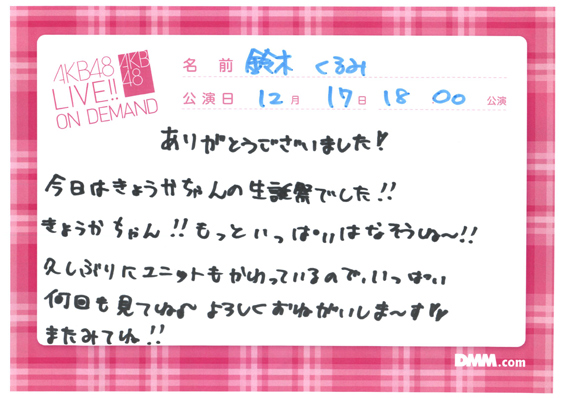 AKB48
LIVE!!
ON DEMAND
AKB
48
名前 鈴木 くるみ
公演日 12月 17日 18 00 公演
ありがとうございました!
今日はきょうかちゃんの生誕祭でした!!
きょうかちゃん!!もっといっぱいはなそうね〜!!
久しぶりにユニットもかわっているので、いっぱい
何回も見てね〜よろしくおねがいしま〜す♡♡
またみてね!!
DMM.com